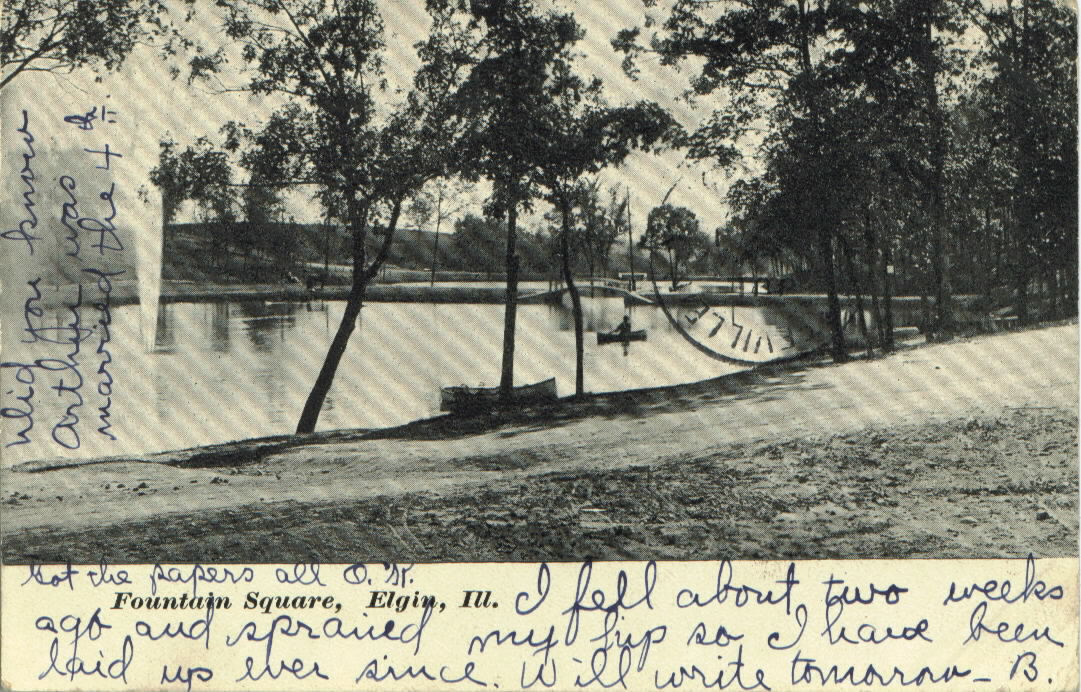 Did you know
Arthur was
married the 4th.
VILLE
Got the papers all O.K.
Fountain Square, Elgin, Ill.
I fell about two weeks
ago and sprained my hip so I have been
laid up ever since. Will write tomorrow - B.